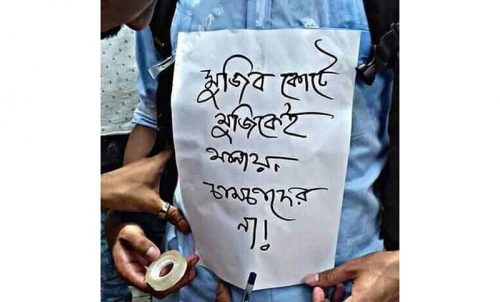 মুজিব কোটে
মুজিবকেই
মানায়,
চামচাদের
না!